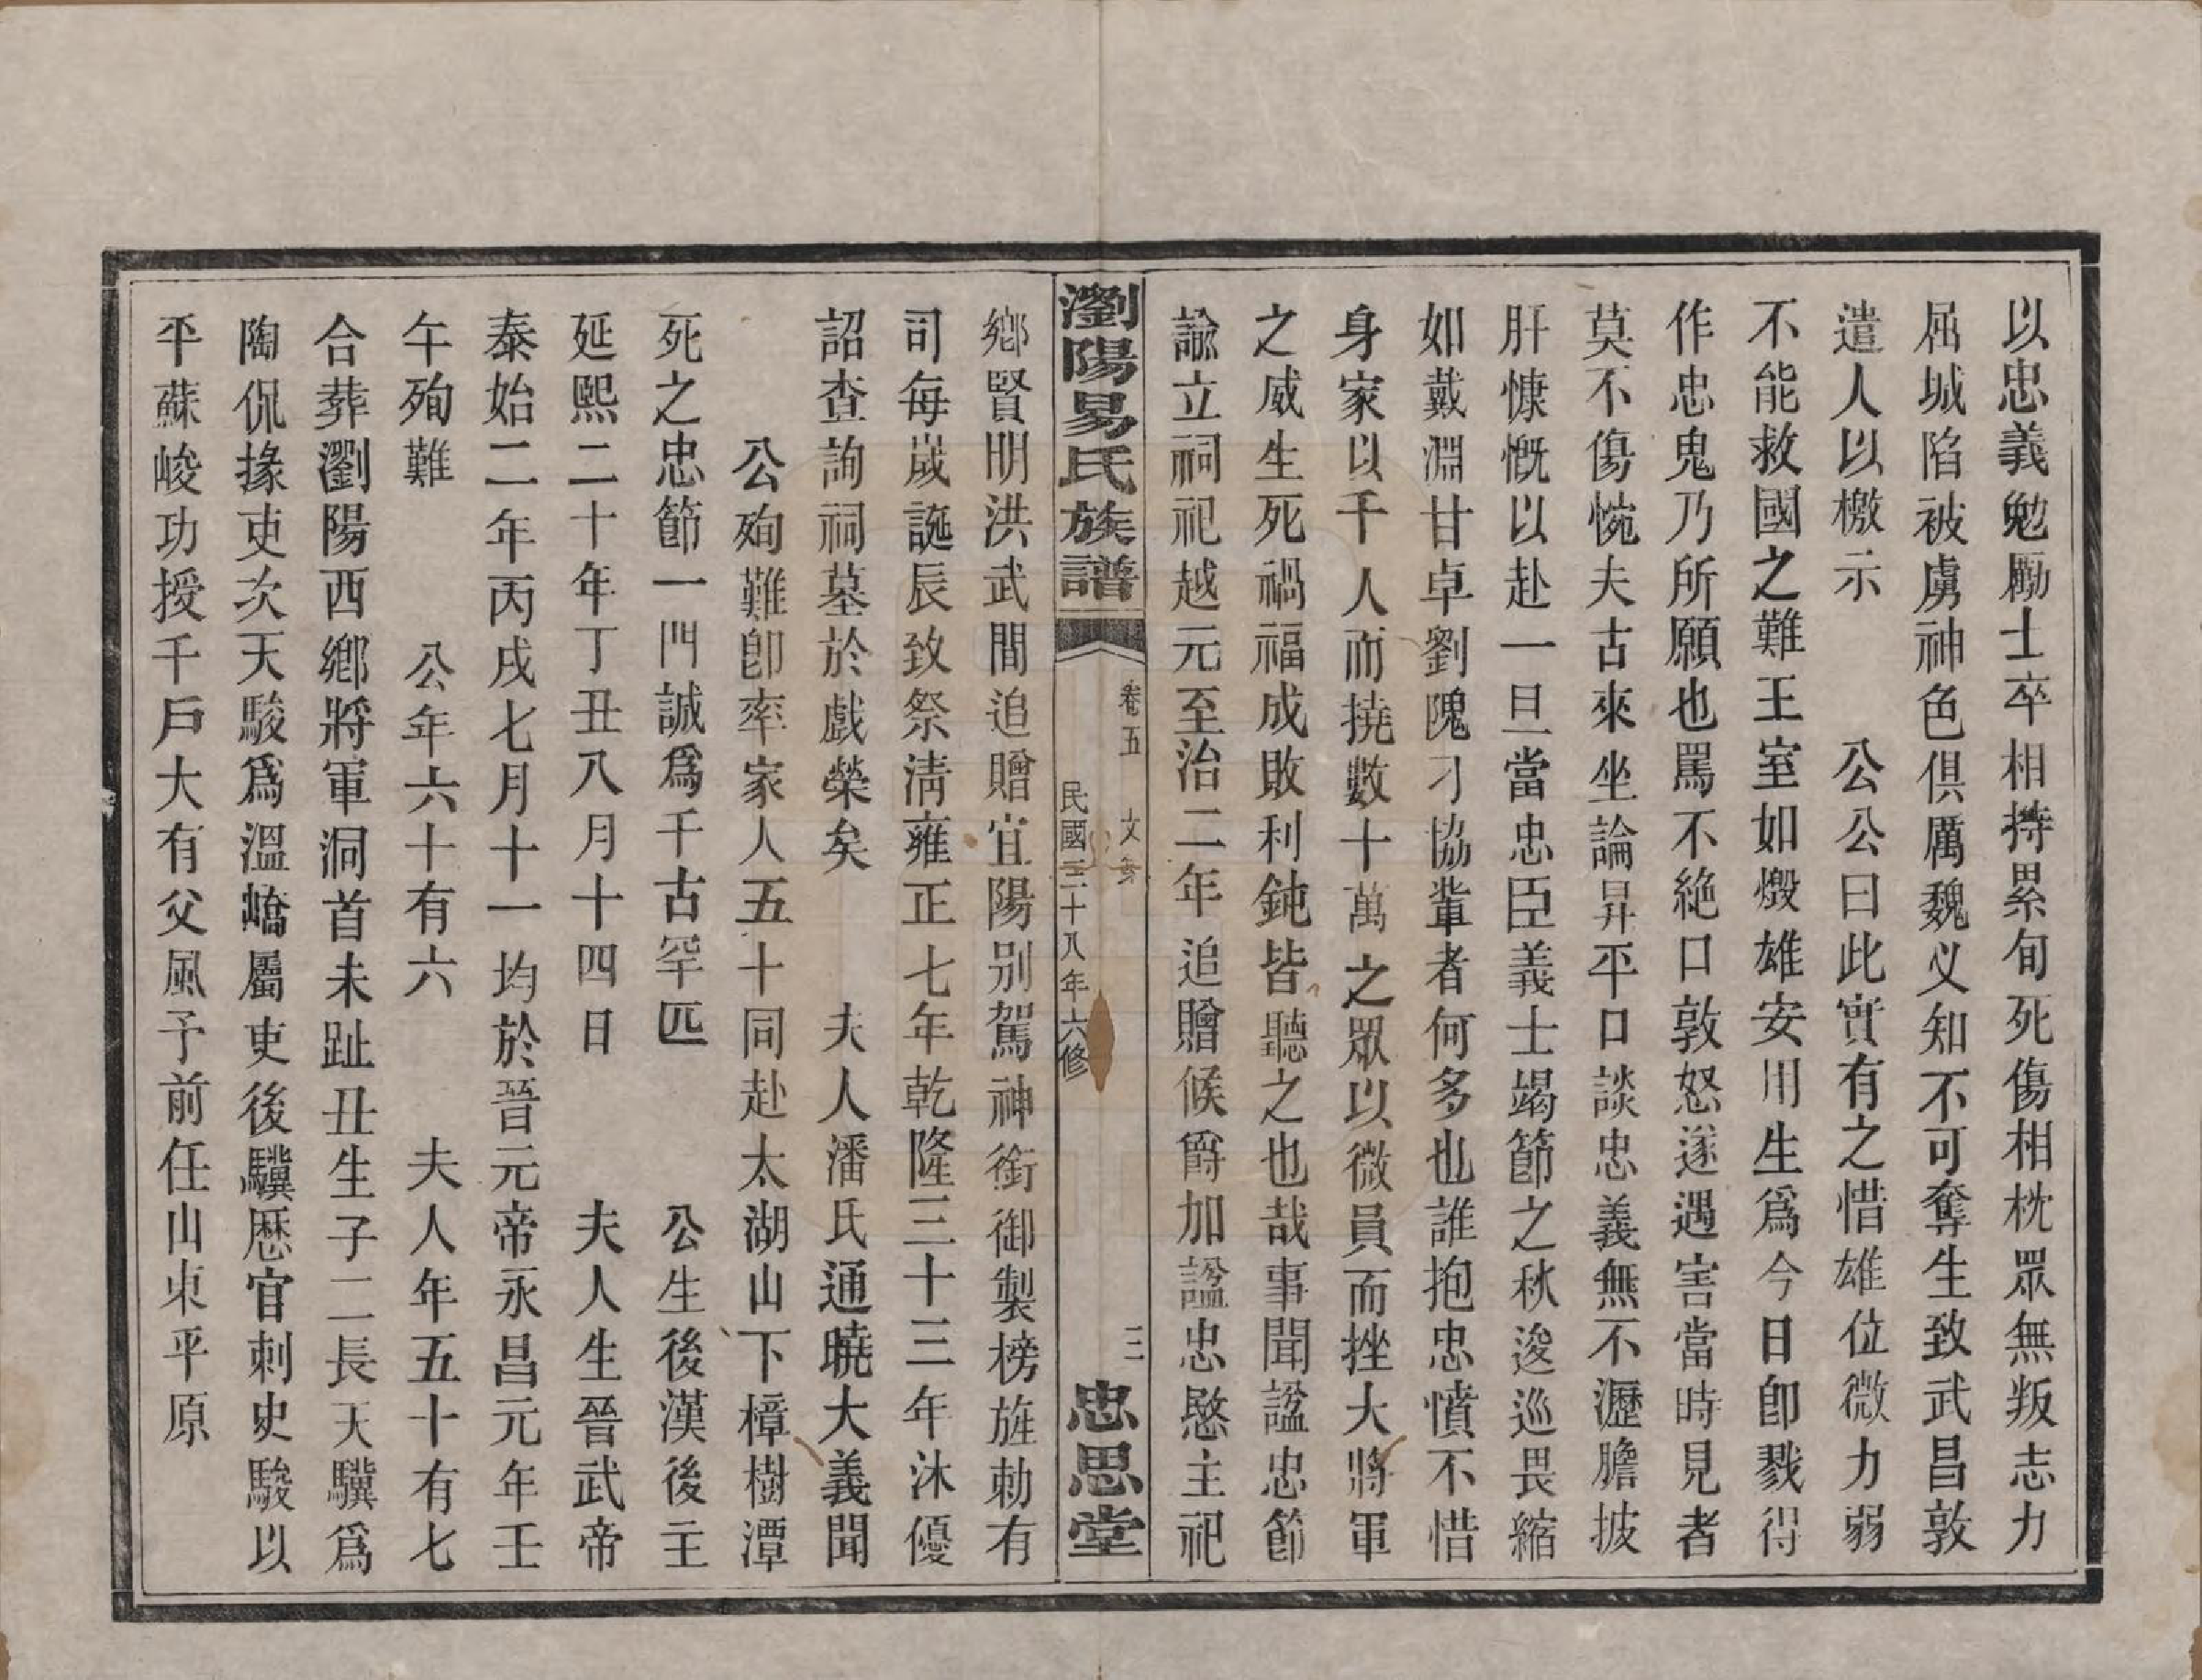 以忠義勉勵士卒相持累旬死傷相枕眾無叛志力
屈城陷被虜神色俱厲魏乂知不可奪生致武昌敦
遣人以檄示　公公曰此實有之惜雄位微力弱
不能救國之難王室如燬雄安用生爲今日卽戮得
作忠鬼乃所願也罵不絶口敦怒遂遇害當時見者
莫不傷惋夫古來坐論昇平口談忠義無不瀝膽披
肝慷慨以赴一旦當忠臣義士竭節之秋逡巡畏縮
如戴淵甘卓劉隗刁協輩者何多也誰抱忠憤不惜
身家以千人而撓數十萬之眾以微員而挫大將軍
之威生死禍福成敗利鈍皆聽之也哉事聞諡忠節
諭立祠祀越元至治二年追贈候爵加諡忠愍主祀
瀏陽易氏族譜
卷五　文
民國三十八年六修
三
忠思堂
鄉賢明洪武間追贈宜陽別駕神銜御製榜旌勅有
司每歲誕辰致祭淸雍正七年乾隆三十三年沐優
詔查詢祠墓於戲榮矣　夫人潘氏通曉大義聞
公殉難卽率家人五十同赴太湖山下樟樹潭
死之忠節一門誠爲千古罕匹　公生後漢後主
延熙二十年丁丑八月十四日　夫人生晉武帝
泰始二年丙戌七月十一均於晉元帝永昌元年壬
午殉難　公年六十有六　夫人年五十有七
合葬瀏陽西鄉將軍洞首未趾丑生子二長天驥爲
陶侃掾吏次天駿爲溫嶠屬吏後驥歷官刺史駿以
平蘇峻功授千戶大有父風予前任山東平原